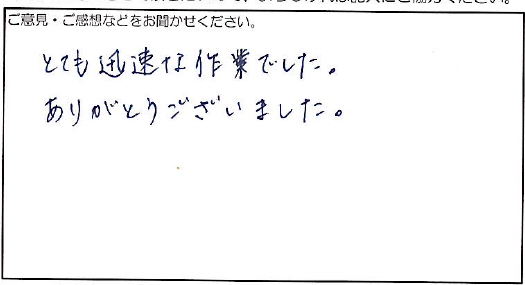 ご意見・ご感想などをお聞かせください。
とても迅速な作業でした。
ありがとうございました。